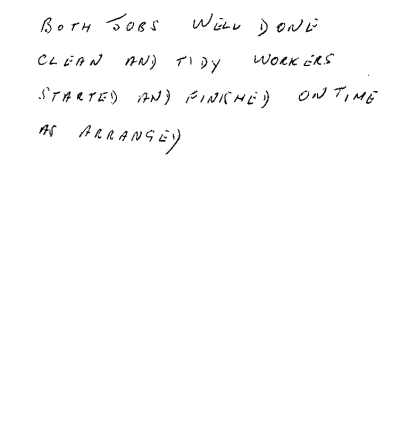 BOTH JOBS WELL DONE
CLEAN AND TIDY WORKERS
STARTED AND FINISHED ON TIME
AS ARRANGED